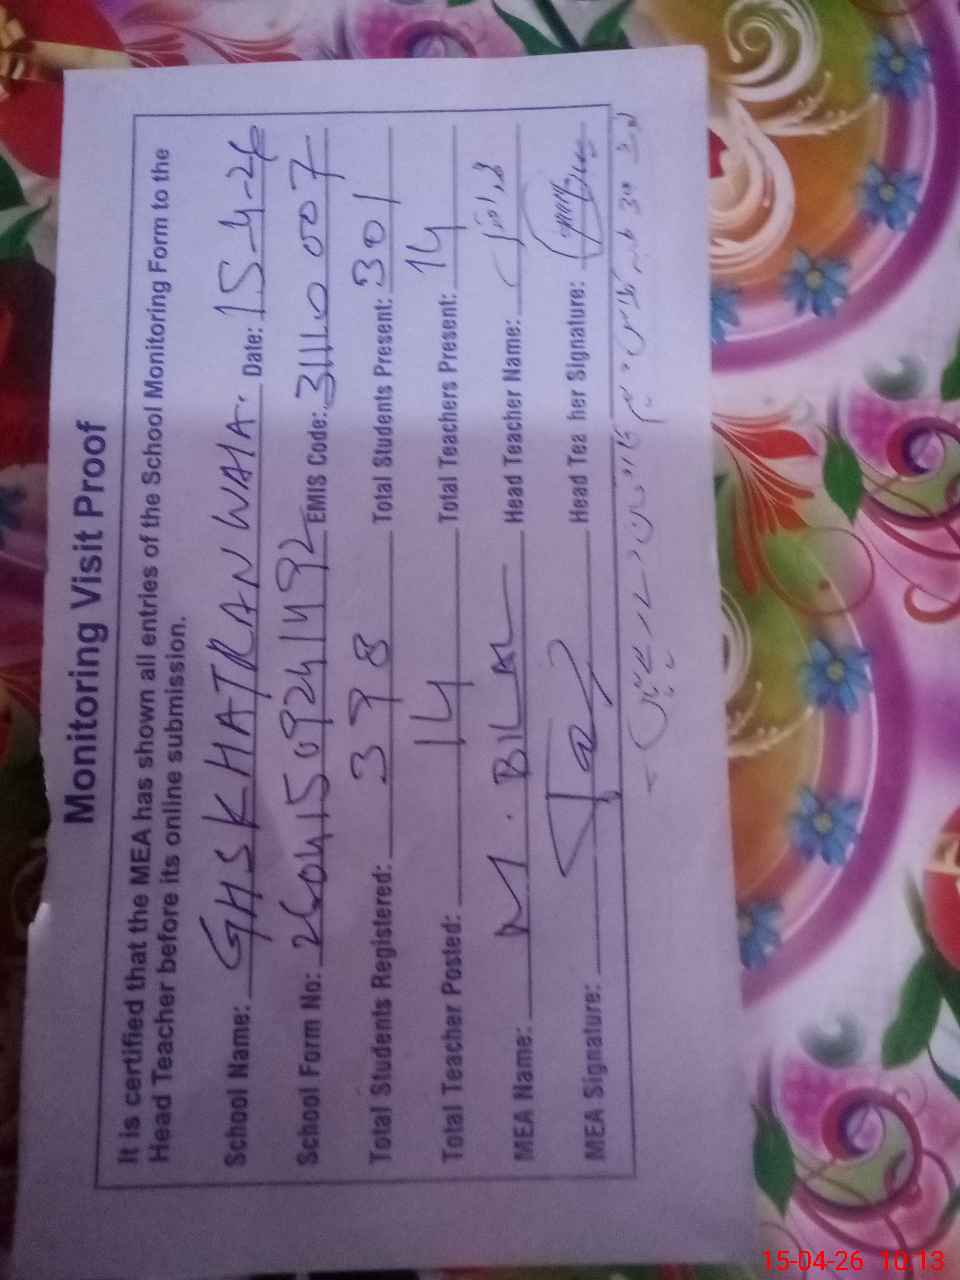 Monitoring Visit Proof
It is certified that the MEA has shown all entries of the School Monitoring Form to the
Head Teacher before its online submission.
School Name: GHS KHATRAN WALA. Date: 15-4-26
School Form No: 26041509241492 EMIS Code: 31110007
Total Students Registered: 398 Total Students Present: 301
Total Teacher Posted: 14 Total Teachers Present: 14
MEA Name: M. BILAL Head Teacher Name:
MEA Signature: Head Tea her Signature:
15-04-26 10:13